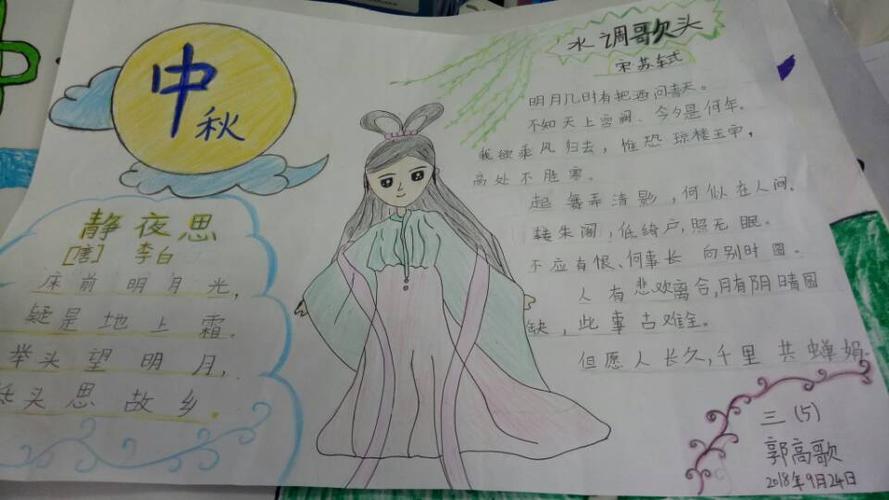 中秋
静夜思
[唐] 李白
床前明月光,
疑是地上霜.
举头望明月,
低头思故乡.
水调歌头
宋苏轼
明月几时有把酒问青天。
不知天上宫阙、今夕是何年。
我欲乘风归去,惟恐琼楼玉宇,
高处不胜寒。
起舞弄清影,何似在人间.
转朱阁,低绮户,照无眠。
不应有恨、何事长 向别时圆。
人有悲欢离合,月有阴晴圆
缺,此事古难全。
但愿人长久,千里共婵娟
三(5)
郭高歌
2018年9月24日